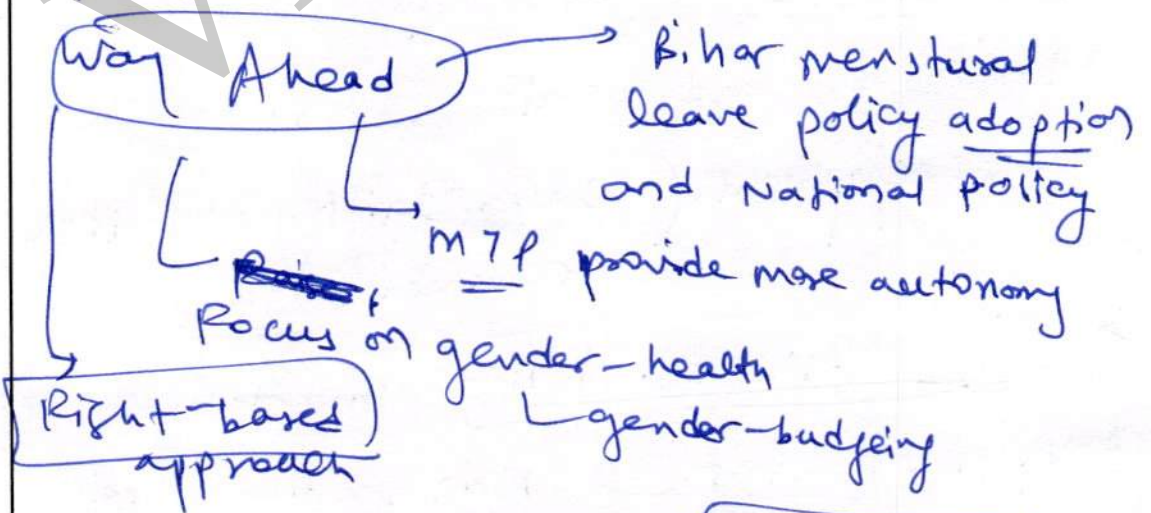 Way Ahead
Bihar menstural
leave policy adoption
and National policy
MTP provide more autonomy
Focus on gender-health
gender-budgeing
Right-based
approach